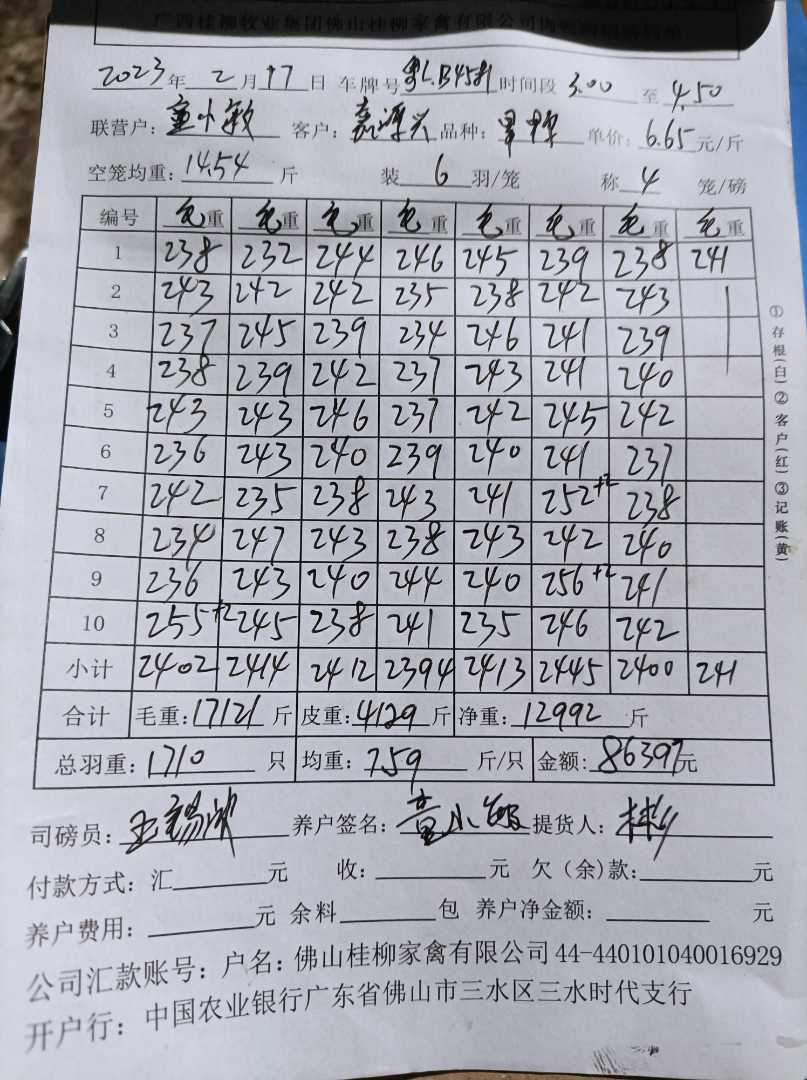 广西桂柳牧业集团佛山桂柳家禽有限公司
2023年 2月 17日 车牌号 B4581 时间段 3.00 至 4.50
联营户: 童小敏 客户: 品种: 单价: 6.65 元/斤
空笼均重: 14.54 斤 装 6 羽/笼 称 4 笼/磅
编号 毛重 毛重 毛重 毛重 毛重 毛重 毛重 毛重
1 238 232 244 246 245 239 238 241
2 243 242 242 235 238 242 243
3 237 245 239 234 246 241 239
4 238 239 242 237 243 241 240
5 243 243 246 237 242 245 242
6 236 243 240 239 240 241 237
7 242 235 238 243 241 252+2 238
8 234 247 243 238 243 242 240
9 236 243 240 244 240 256+2 241
10 255+2 245 238 241 235 246 242
小计 2402 2414 2412 2394 2413 2445 2400 241
合计 毛重: 17121 斤 皮重: 4129 斤 净重: 12992 斤
总羽重: 1710 只 均重: 7.59 斤/只 金额: 86397元
司磅员: 养户签名: 童小敏 提货人:
付款方式: 汇 元 收: 元 欠(余)款: 元
养户费用: 元 余料 包 养户净金额: 元
公司汇款账号: 户名: 佛山桂柳家禽有限公司 44-440101040016929
开户行: 中国农业银行广东省佛山市三水区三水时代支行
①存根(白)②客户(红)③记账(黄)